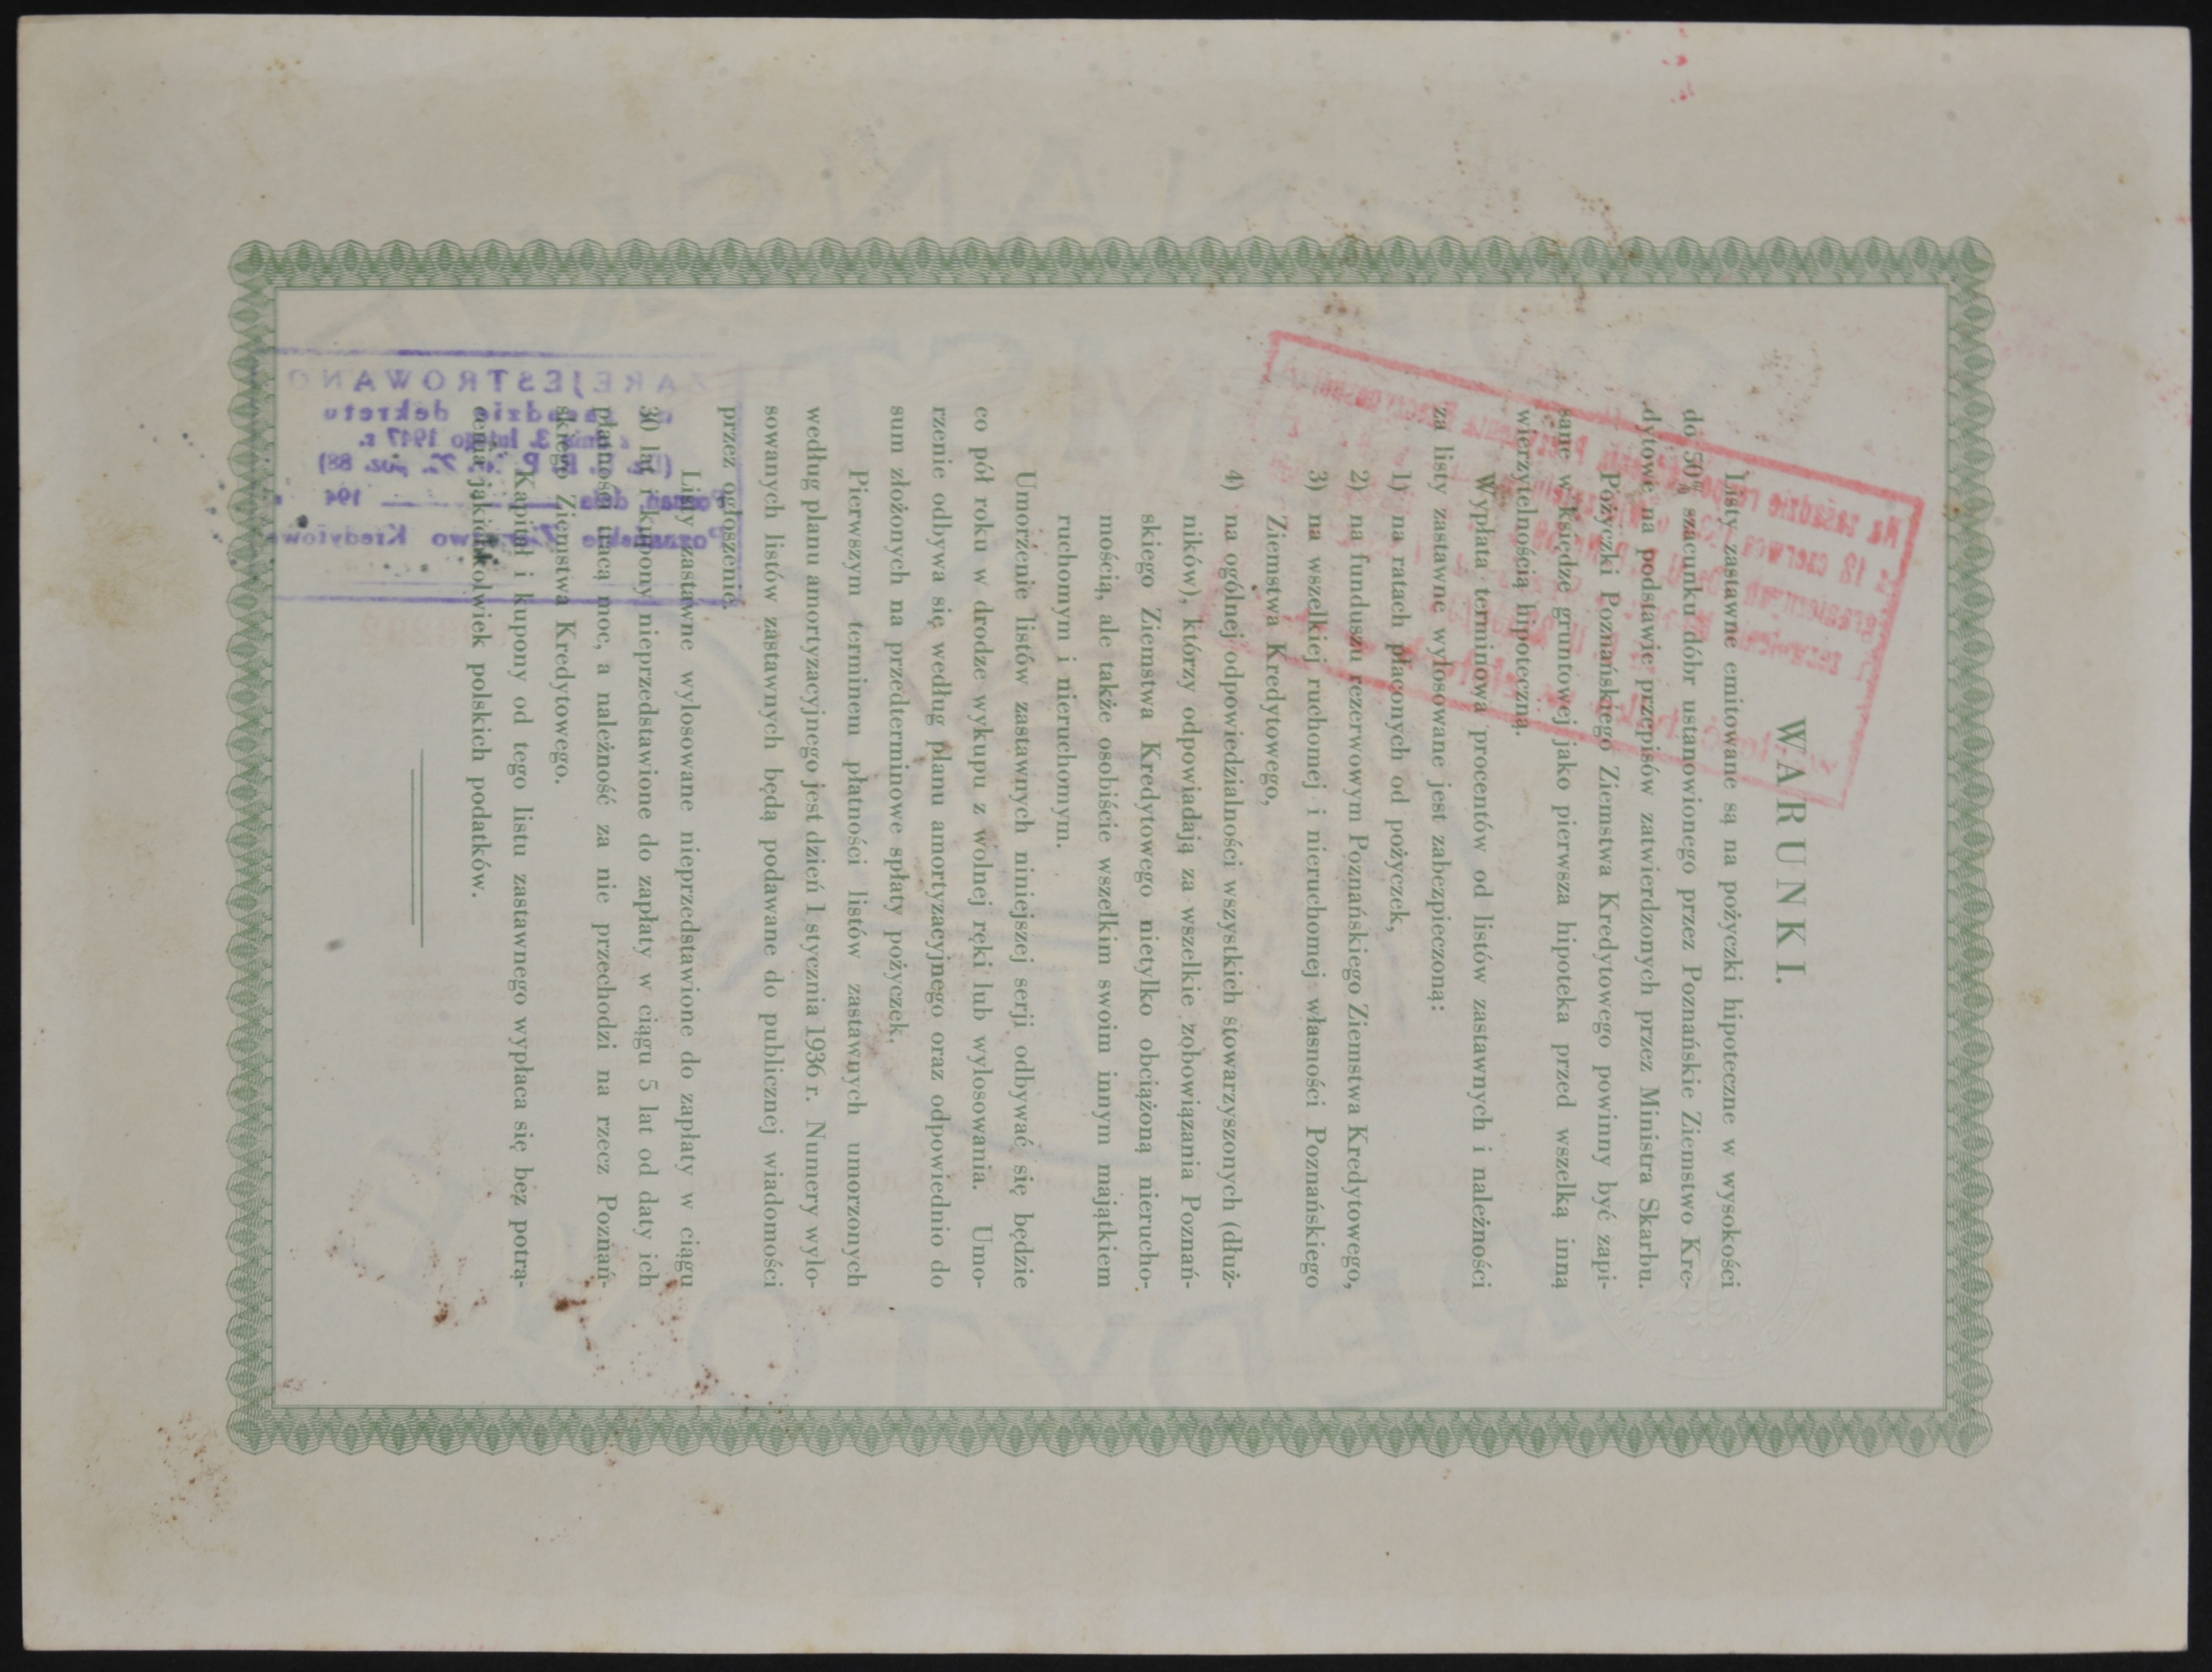 WARUNKI.
Listy zastawne emitowane są na pożyczki hipoteczne w wysokości
do 50% szacunku dóbr ustanowionego przez Poznańskie Ziemstwo Kre-
dytowe na podstawie przepisów zatwierdzonych przez Ministra Skarbu.
Pożyczki Poznańskiego Ziemstwa Kredytowego powinny być zapi-
sane w księdze gruntowej jako pierwsza hipoteka przed wszelką inną
wierzytelnością hipoteczną.
Wypłata terminowa procentów od listów zastawnych i należności
za listy zastawne wylosowane jest zabezpieczoną:
1) na ratach płaconych od pożyczek,
2) na funduszu rezerwowym Poznańskiego Ziemstwa Kredytowego,
3) na wszelkiej ruchomej i nieruchomej własności Poznańskiego
Ziemstwa Kredytowego,
4) na ogólnej odpowiedzialności wszystkich stowarzyszonych (dłuż-
ników), którzy odpowiadają za wszelkie zobowiązania Poznań-
skiego Ziemstwa Kredytowego nietylko obciążoną nierucho-
mością, ale także osobiście wszelkim swoim innym majątkiem
ruchomym i nieruchomym.
Umorzenie listów zastawnych niniejszej serji odbywać się będzie
co pół roku w drodze wykupu z wolnej ręki lub wylosowania. Umo-
rzenie odbywa się według planu amortyzacyjnego oraz odpowiednio do
sum złożonych na przedterminowe spłaty pożyczek.
Pierwszym terminem płatności listów zastawnych umorzonych
według planu amortyzacyjnego jest dzień 1 stycznia 1936 r. Numery wylo-
sowanych listów zastawnych będą podawane do publicznej wiadomości
przez ogłoszenie.
Listy zastawne wylosowane nieprzedstawione do zapłaty w ciągu
30 lat i kupony nieprzedstawione do zapłaty w ciągu 5 lat od daty ich
płatności tracą moc, a należność za nie przechodzi na rzecz Poznań-
skiego Ziemstwa Kredytowego.
Kapitał i kupony od tego listu zastawnego wypłaca się bez potrą-
cenia jakichkolwiek polskich podatków.
ZAREJESTROWANO
na zasadzie dekretu
z dnia 3. lutego 1947 r.
poz. 88)
Poznań dnia 194
Poznańskie Ziemstwo Kredytowe
Na zasadzie rozporządzenia Prezydenta Rzeczypospolitej
z 12 czerwca